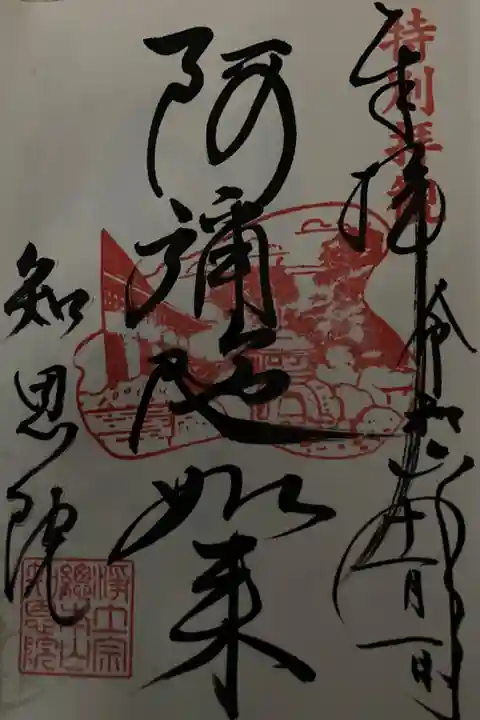 特別拝観
奉拝
令和六年十一月一日
阿彌陀如来
知恩院
浄土宗
總本山
知恩院